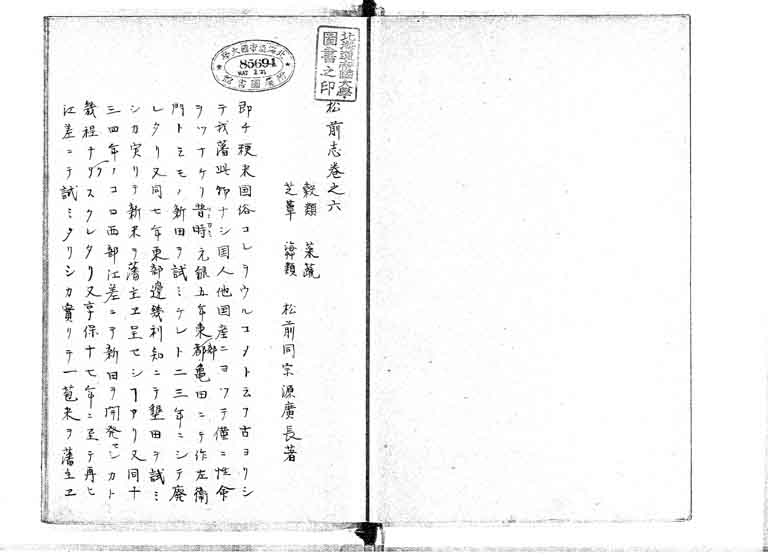 北海道帝國大學
圖書之印
北海道帝國大學
85694
所藏圖書館
松前志巻之六
穀類 菜蔬
芝蕈 海草類 松前同宗源廣長著
即チ粳米国俗コレヲウルコメト云フ古ヨリシ
テ我藩此物ナシ国人他国産ニヨツテ僅ニ性命
ヲツナケリ昔時元禄五年東都亀田ニテ作左衛
部
門トモノ新田ヲ試ミケレト二三年ニシテ廃
レタリ又同七年東部邊幾利知ニテ墾田ヲ試ミ
シカ実リテ新米ヲ藩主ヱ呈セシヿアリ又同十
三四年ノコロ西部江差ニテ新田ヲ開発センカト
幾程ナリスタレタリ又享保十七年ニ至テ再ヒ
江差ニテ試ミタリシカ實リテ一苞米ヲ藩主ヱ